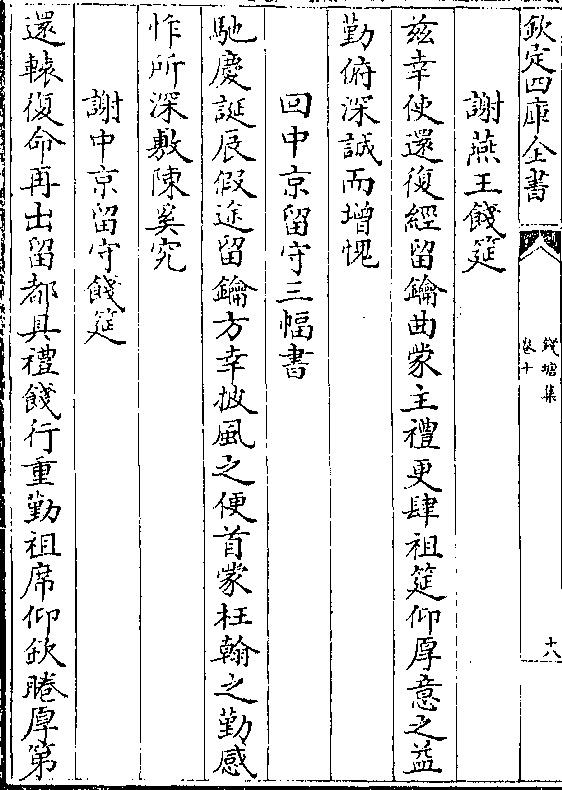 欽定四庫全書
錢塘集
卷十
十八
謝燕王餞筵
兹幸使還復經留鑰曲蒙主禮更肆祖筵仰厚意之益
勤俯深誠而增愧
回中京留守三幅書
馳慶誕辰假途留鑰方幸披風之便首蒙枉翰之勤感
怍所深敷陳奚究
謝中京留守餞筵
還轅復命再出留都具禮餞行重勤祖席仰欽腃厚第